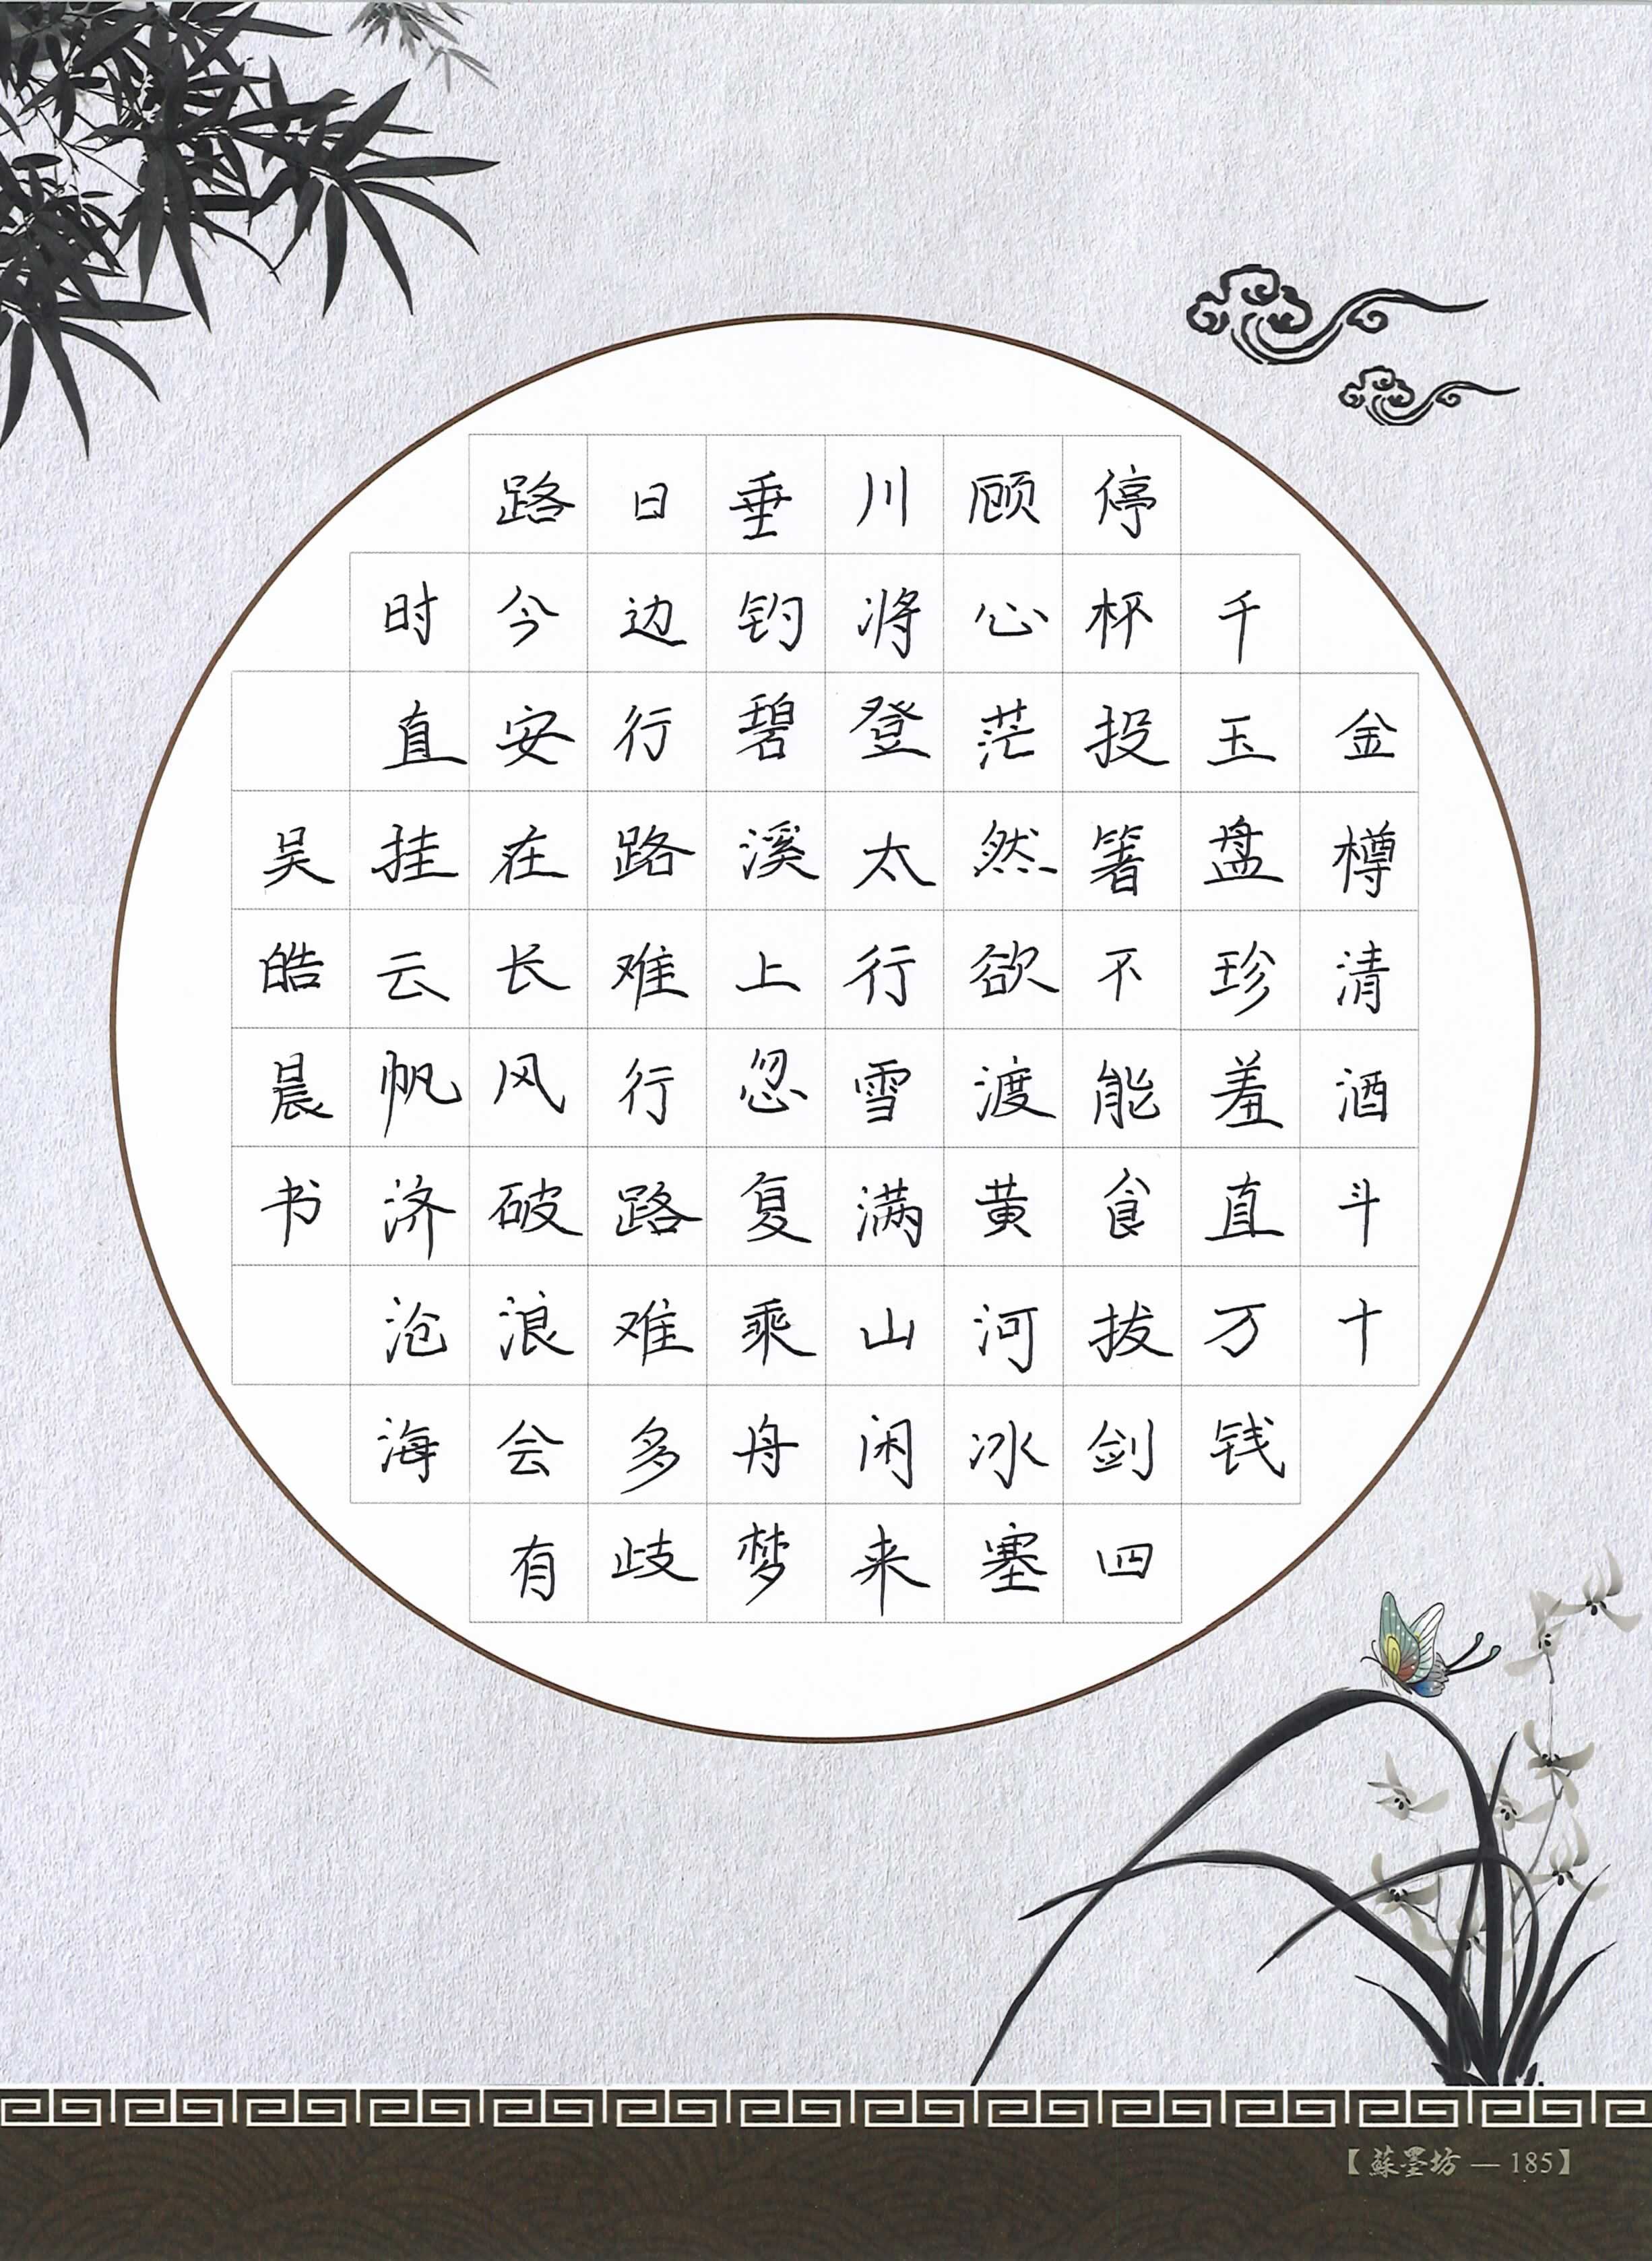 金樽清酒斗十
千玉盘珍羞直万钱
停杯投箸不能食拔剑四
顾心茫然欲渡黄河冰塞
川将登太行雪满山闲来
垂钓碧溪上忽复乘舟梦
日边行路难行路难多歧
路今安在长风破浪会有
时直挂云帆济沧海
吴皓晨书
【蘇墨坊 — 185】